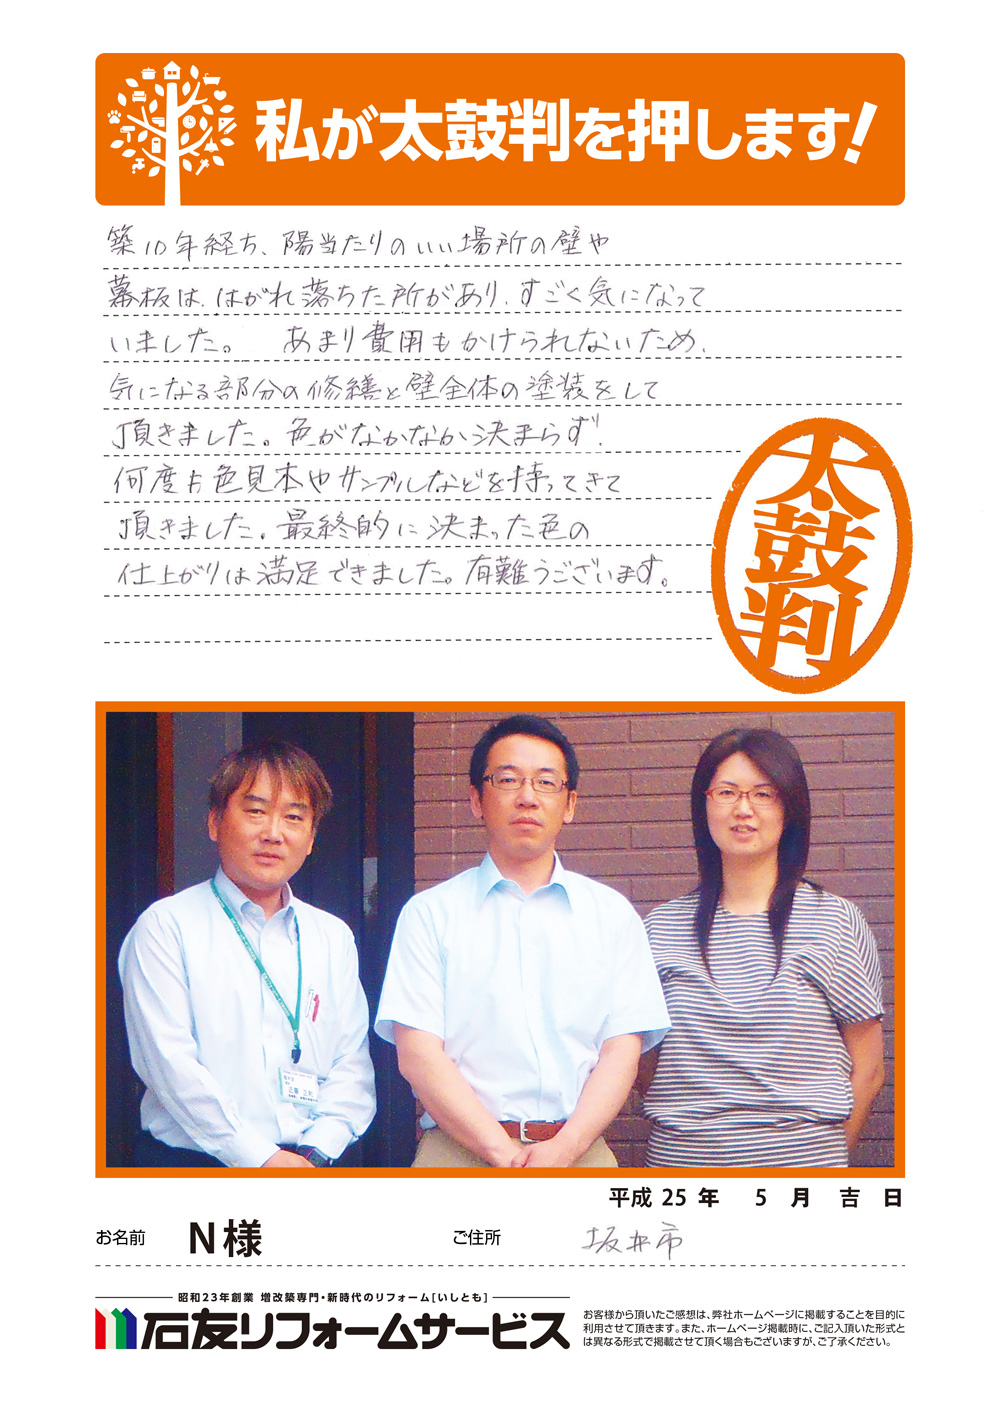 私が太鼓判を押します!
築10年経ち、陽当たりのいい場所の壁や
幕板は、はがれ落ちた所があり、すごく気になって
いました。 あまり費用もかけられないため、
気になる部分の修繕と壁全体の塗装をして
頂きました。色がなかなか決まらず、
何度も色見本やサンプルなどを持ってきて
頂きました。最終的に決まった色の
仕上がりは満足できました。有難うございます。
太鼓判
平成 25 年 5 月 吉 日
お名前 N様 ご住所 坂井市
昭和23年創業 増改築専門・新時代のリフォーム[いしとも]
石友リフォームサービス
お客様から頂いたご感想は、弊社ホームページに掲載することを目的に
利用させて頂きます。また、ホームページ掲載時に、ご記入頂いた形式と
は異なる形式で掲載させて頂く場合もございますが、ご了承ください。